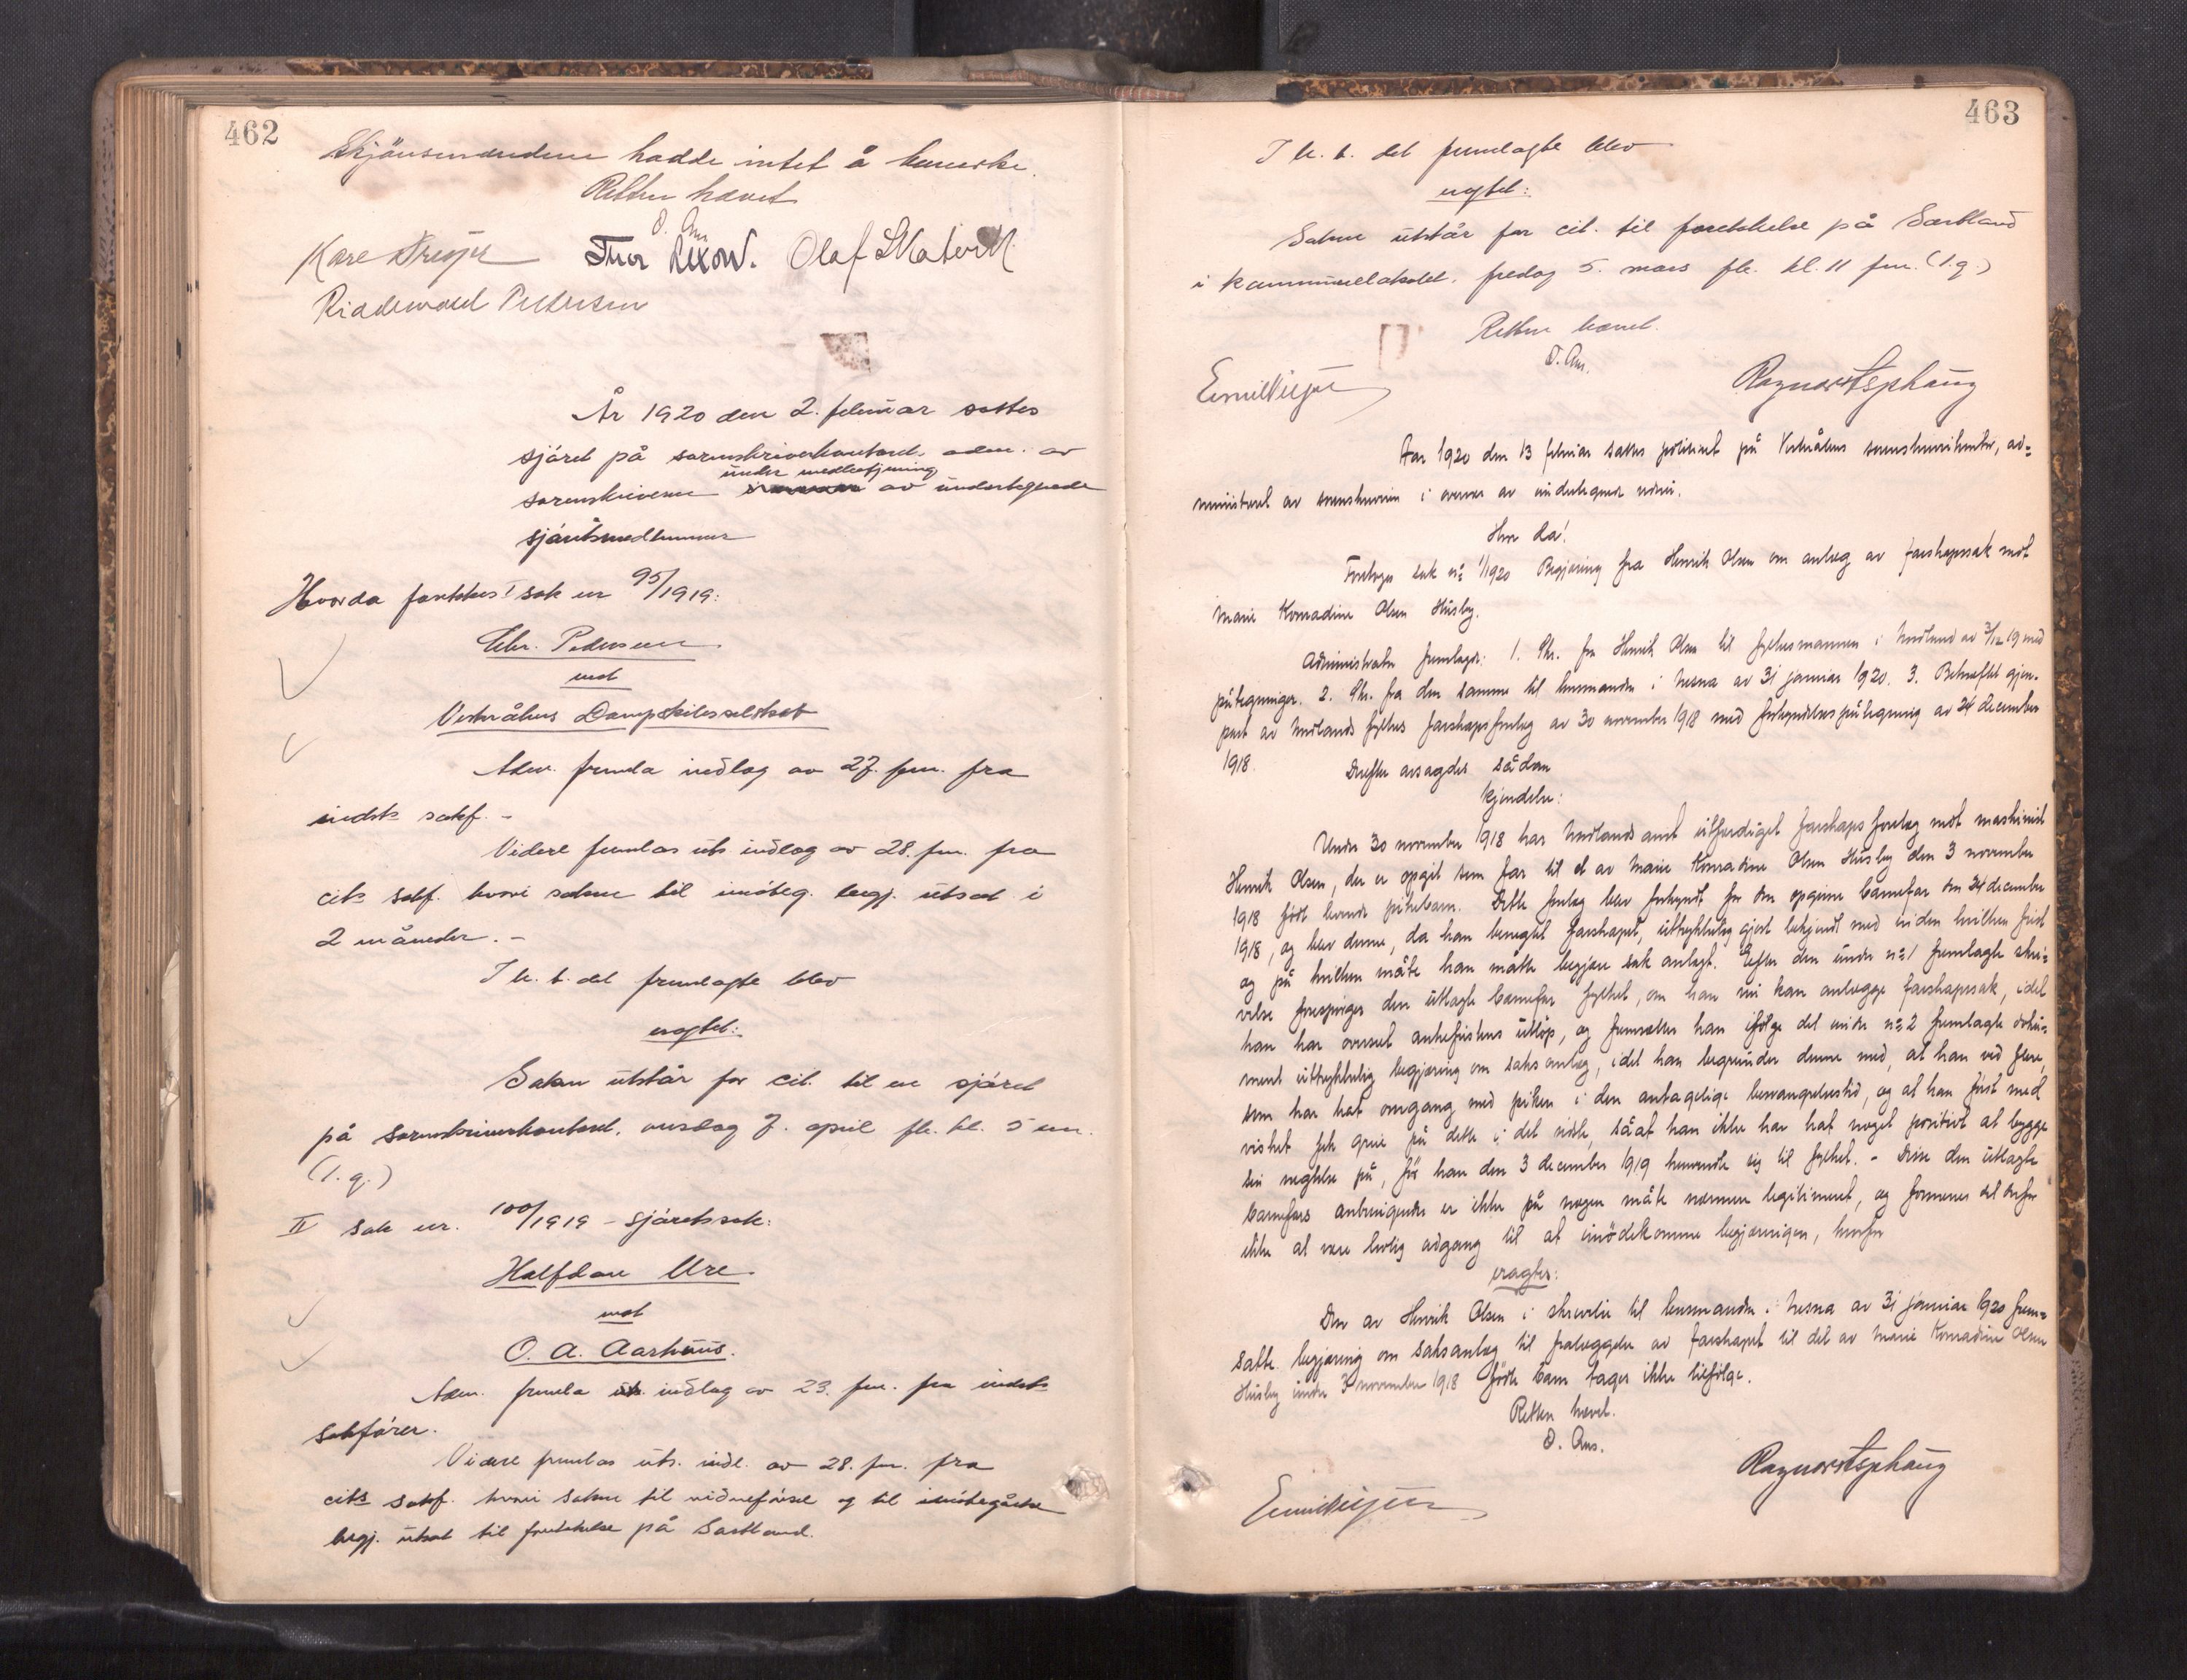 462
Skjönsmændene hadde intet å bemerke.
Retten hævet
O. Am
Kåre Dreyer Thor Lexow. Olaf
Pedersen
År 1920 den 2. februar sattes
sjöret på sorenskriverkontoret. adm. av
sorenskriveren under medbetjening av undertegnede
sjöretsmedlemmer
Hvorda foretokes: I sak nr 95/1919:
Chr. Pedersen
mot
Vesterålens Dampskibsselskab
Adm. fremla indlæg av 27. f.m. fra
indst. sakf. -
Videre fremlas uts. indlæg av 28. f.m. fra
cits sakf. hvori saken til imöteg. begj. utsat i
2 måneder. -
I h. t. det fremlagte blev
eragtet:
Saken utstår for cit. til en sjöret
på sorenskriverkontoret. onsdag 7. april fk. kl. 5 em.
(l. q.)
II sak nr. 100/1919 - sjöretssak:
Halfdan Ure
mot
O. A. Aarhuus.
Adm. fremla indlæg av 23. f.m. fra indst.
sakförer.
Videre fremlas uts. indl. av 28. f.m. fra
cits sakf. hvori saken til vidneförsel og til imötegåelse
begj. utsat til foretakelse på Sortland.
463
I h. t. det fremlagte blev
eragtet:
Saken utstår for cit. til foretakelse på Sortland
i kommunelokalet. fredag 5. mars fk. kl. 11 fm. (l. q.)
Retten hævet.
O. Am.
Ragnar Asphaug
Aar 1920 den 13 februar sattes politiret på Vesterålens sorenskriverkontor, ad=
ministreret av sorenskriveren i overvær av undertegnede vidner.
Hvor da!
Foretoges sak no 1/1920 Begjæring fra Henrik Olsen om anlæg av farskapssak mot
Marie Konradine Olsen Husby.
Administrator fremlagde: 1. Skr. fra Henrik Olsen til fylkesmannen i Nordland av 3/12 19 med
påtegninger. 2. Skr. fra den samme til lensmanden i Nesna av 31 januar 1920. 3. Bekræftet gjen-
part av Nordlands fylkes farskapsforelæg av 30 november 1918 med forkyndelsespåtegning av 24 december
1918.
Derefter avsagdes sådan
kjendelse:
Under 30 november 1918 har Nordlands amt utfærdiget farskapsforelæg mot maskinist
Henrik Olsen, der er opgit som far til et av Marie Konradine Olsen Husby den 3 november
1918 födt levende pikebarn. Dette forelæg blev forkyndt for den opgivne barnefar den 24 december
1918, og blev denne, da han benegtet farskapet, uttrykkelig gjort bekjendt med inden hvilken frist
og på hvilken måte han måtte begjære sak anlagt. Efter den under no 1 fremlagte skri=
velse forespörger den utlagte barnefar fylket, om han nu kan anlægge farskapssak, idet
han har oversét ankefristens utlöp, og fremsætter han ifölge det under no 2 fremlagte doku=
ment uttrykkelig begjæring om saksanlæg, idet han begrunder denne med, at han ved flere,
som har hat omgang med piken i den antagelige besvangrelsestid, og at han först med
vished fik greie på dette i det sidste, såat han ikke har hat noget positivt at bygge
sin negtelse på, för han den 3 december 1919 henvendte sig til fylket. - Disse den utlagte
barnefars anbringender er ikke på nogen måte nærmere legitimert, og formenes det derfor
ikke at være lovlig adgang til at imödekomme begjæringen, hvorfor
eragtes:
Den av Henrik Olsen i skrivelse til lensmanden i Nesna av 31 januar 1920 frem=
satte begjæring om saksanlæg til fralæggelse av farskapet til det av Marie Konradine Olsen
Husby under 3 november 1918 födte barn tages ikke tilfölge.
Retten hævet.
O. Am.
Ragnar Asphaug